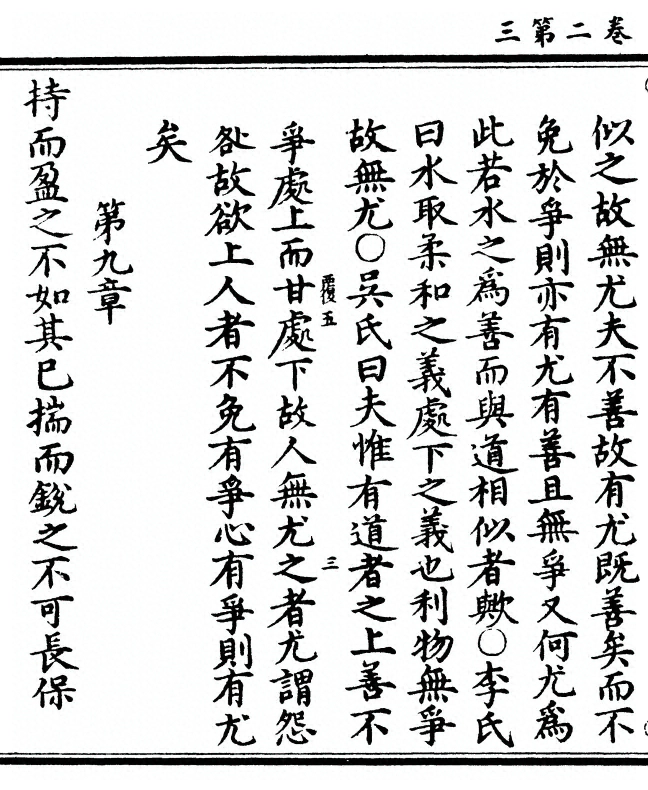 三第二卷
似之故無尤夫不善故有尤既善矣而不
免於爭則亦有尤有善且無爭又何尤為
此若水之為善而與道相似者歟〇李氏
曰水取柔和之義處下之義也利物無爭
故無尤〇吳氏曰夫惟有道者之上善不
覆後五
三
爭處上而甘處下故人無尤之者尤謂怨
咎故欲上人者不免有爭心有爭則有尤
矣
第九章
持而盈之不如其已揣而銳之不可長保